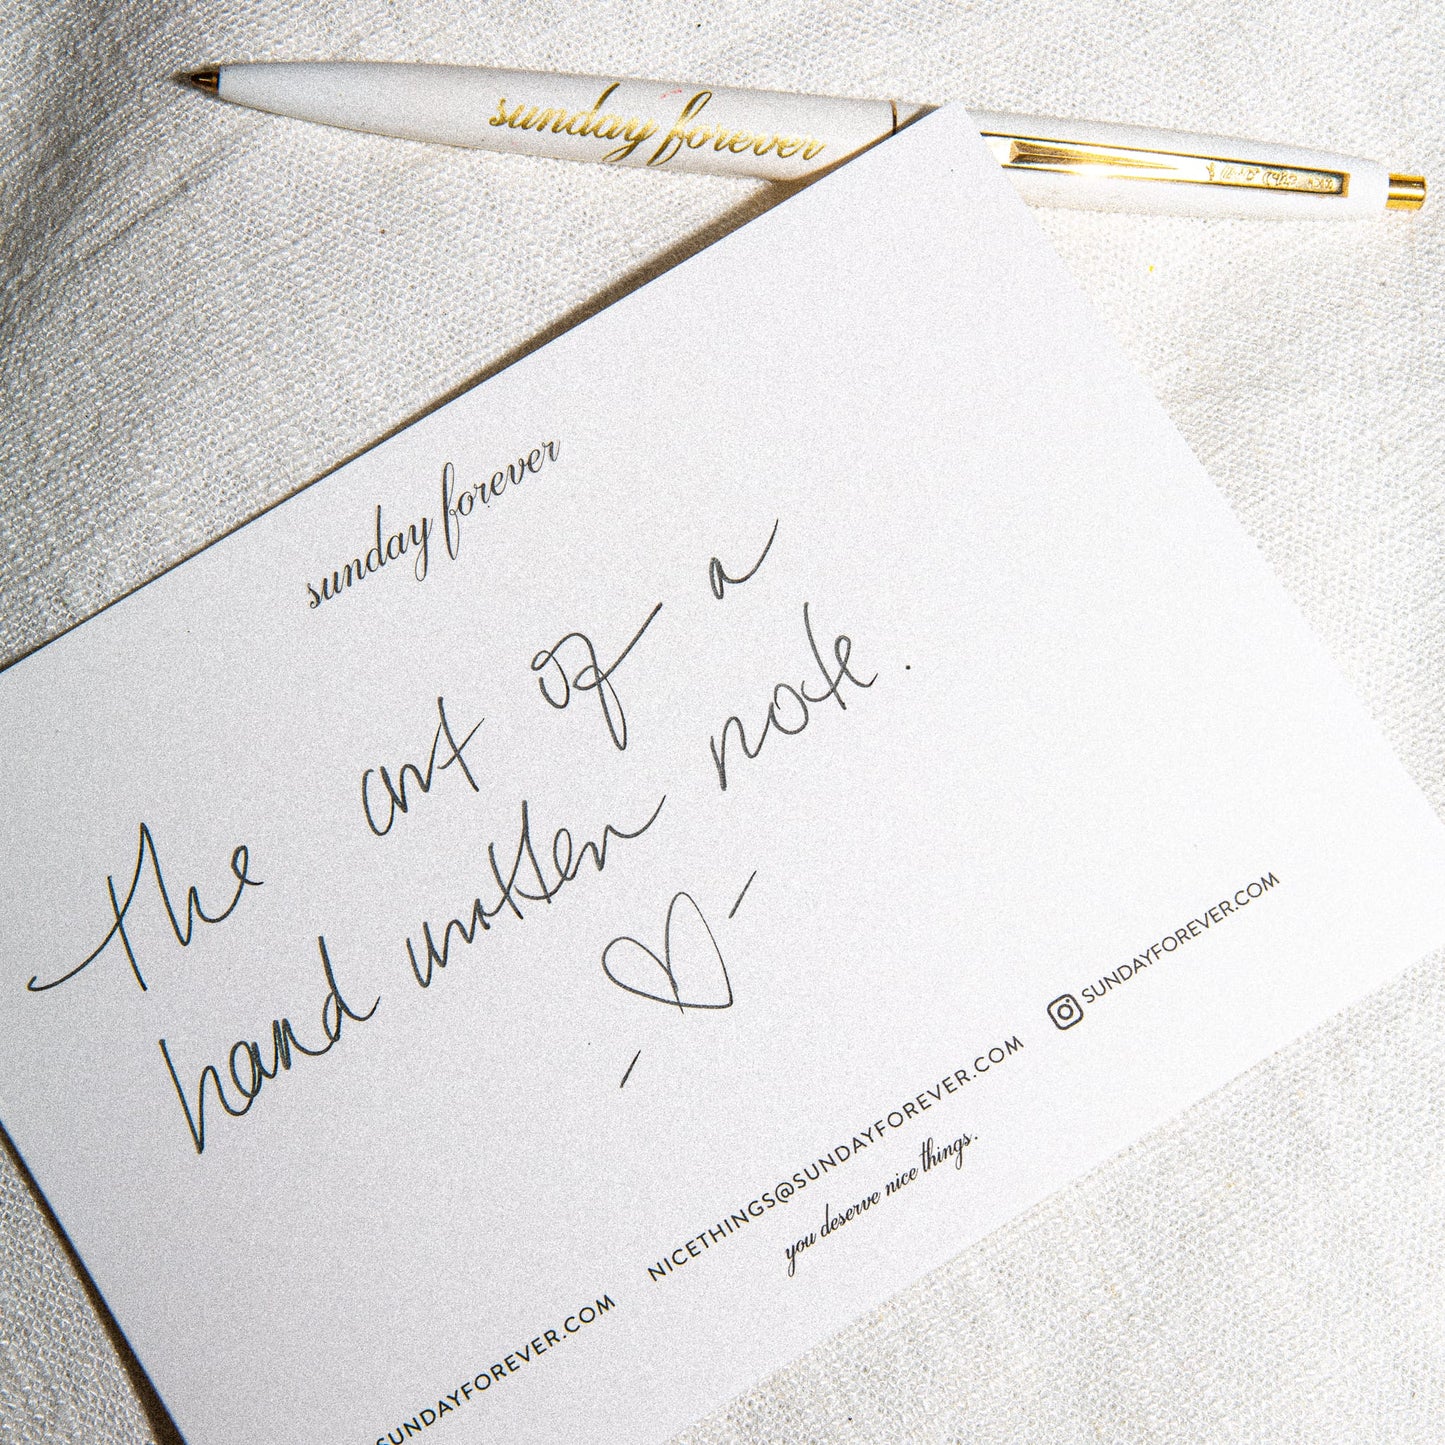 sunday forever
sunday forever
the art of a
hand written note.
SUNDAYFOREVER.COM
NICETHINGS@SUNDAYFOREVER.COM
SUNDAYFOREVER.COM
you deserve nice things.